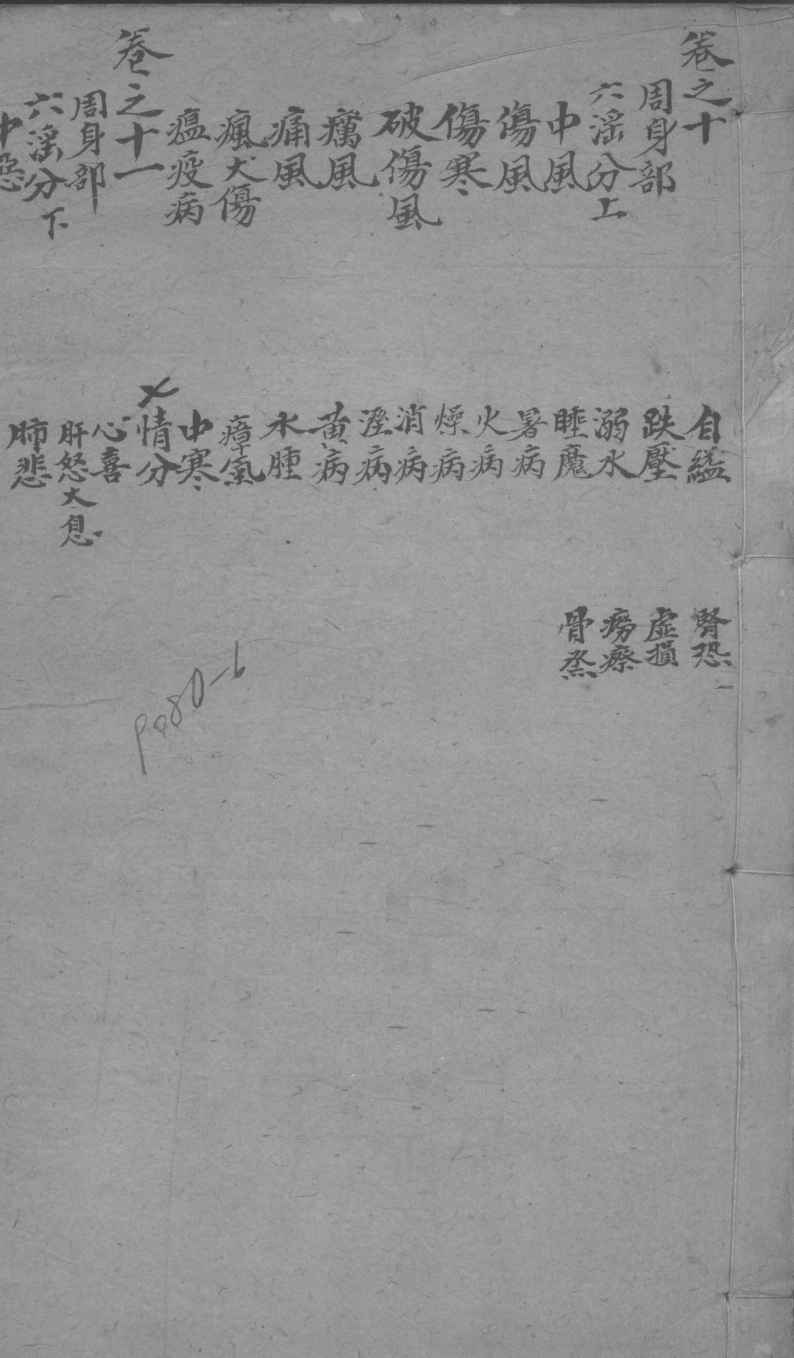 卷之十
周身部
六淫分上
中風
傷風
傷寒
破傷風
癘風
痛風
瘋犬傷
瘟疫病
卷之十一
周身部
六淫分下
中惡
自縊
跌壓
溺水
睡魔
暑病
火病
燥病
消病
溼病
黃病
水腫
瘴氣
中寒
七情分
心喜
肝怒大息
肺悲
腎恐
虛損
癆瘵
骨烝